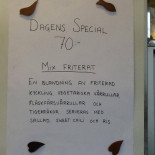 DAGENS SPECIAL
70:-
MIX FRITERAT
EN BLANDNING AV FRITERAD
KYCKLING, VEGETARISKA VÅRRULLAR
FLÄSKFÄRSVÅRRULLAR OCH
TIGERRÄKOR SERVERAS MED
SALLAD, SWEET CHILI OCH RIS